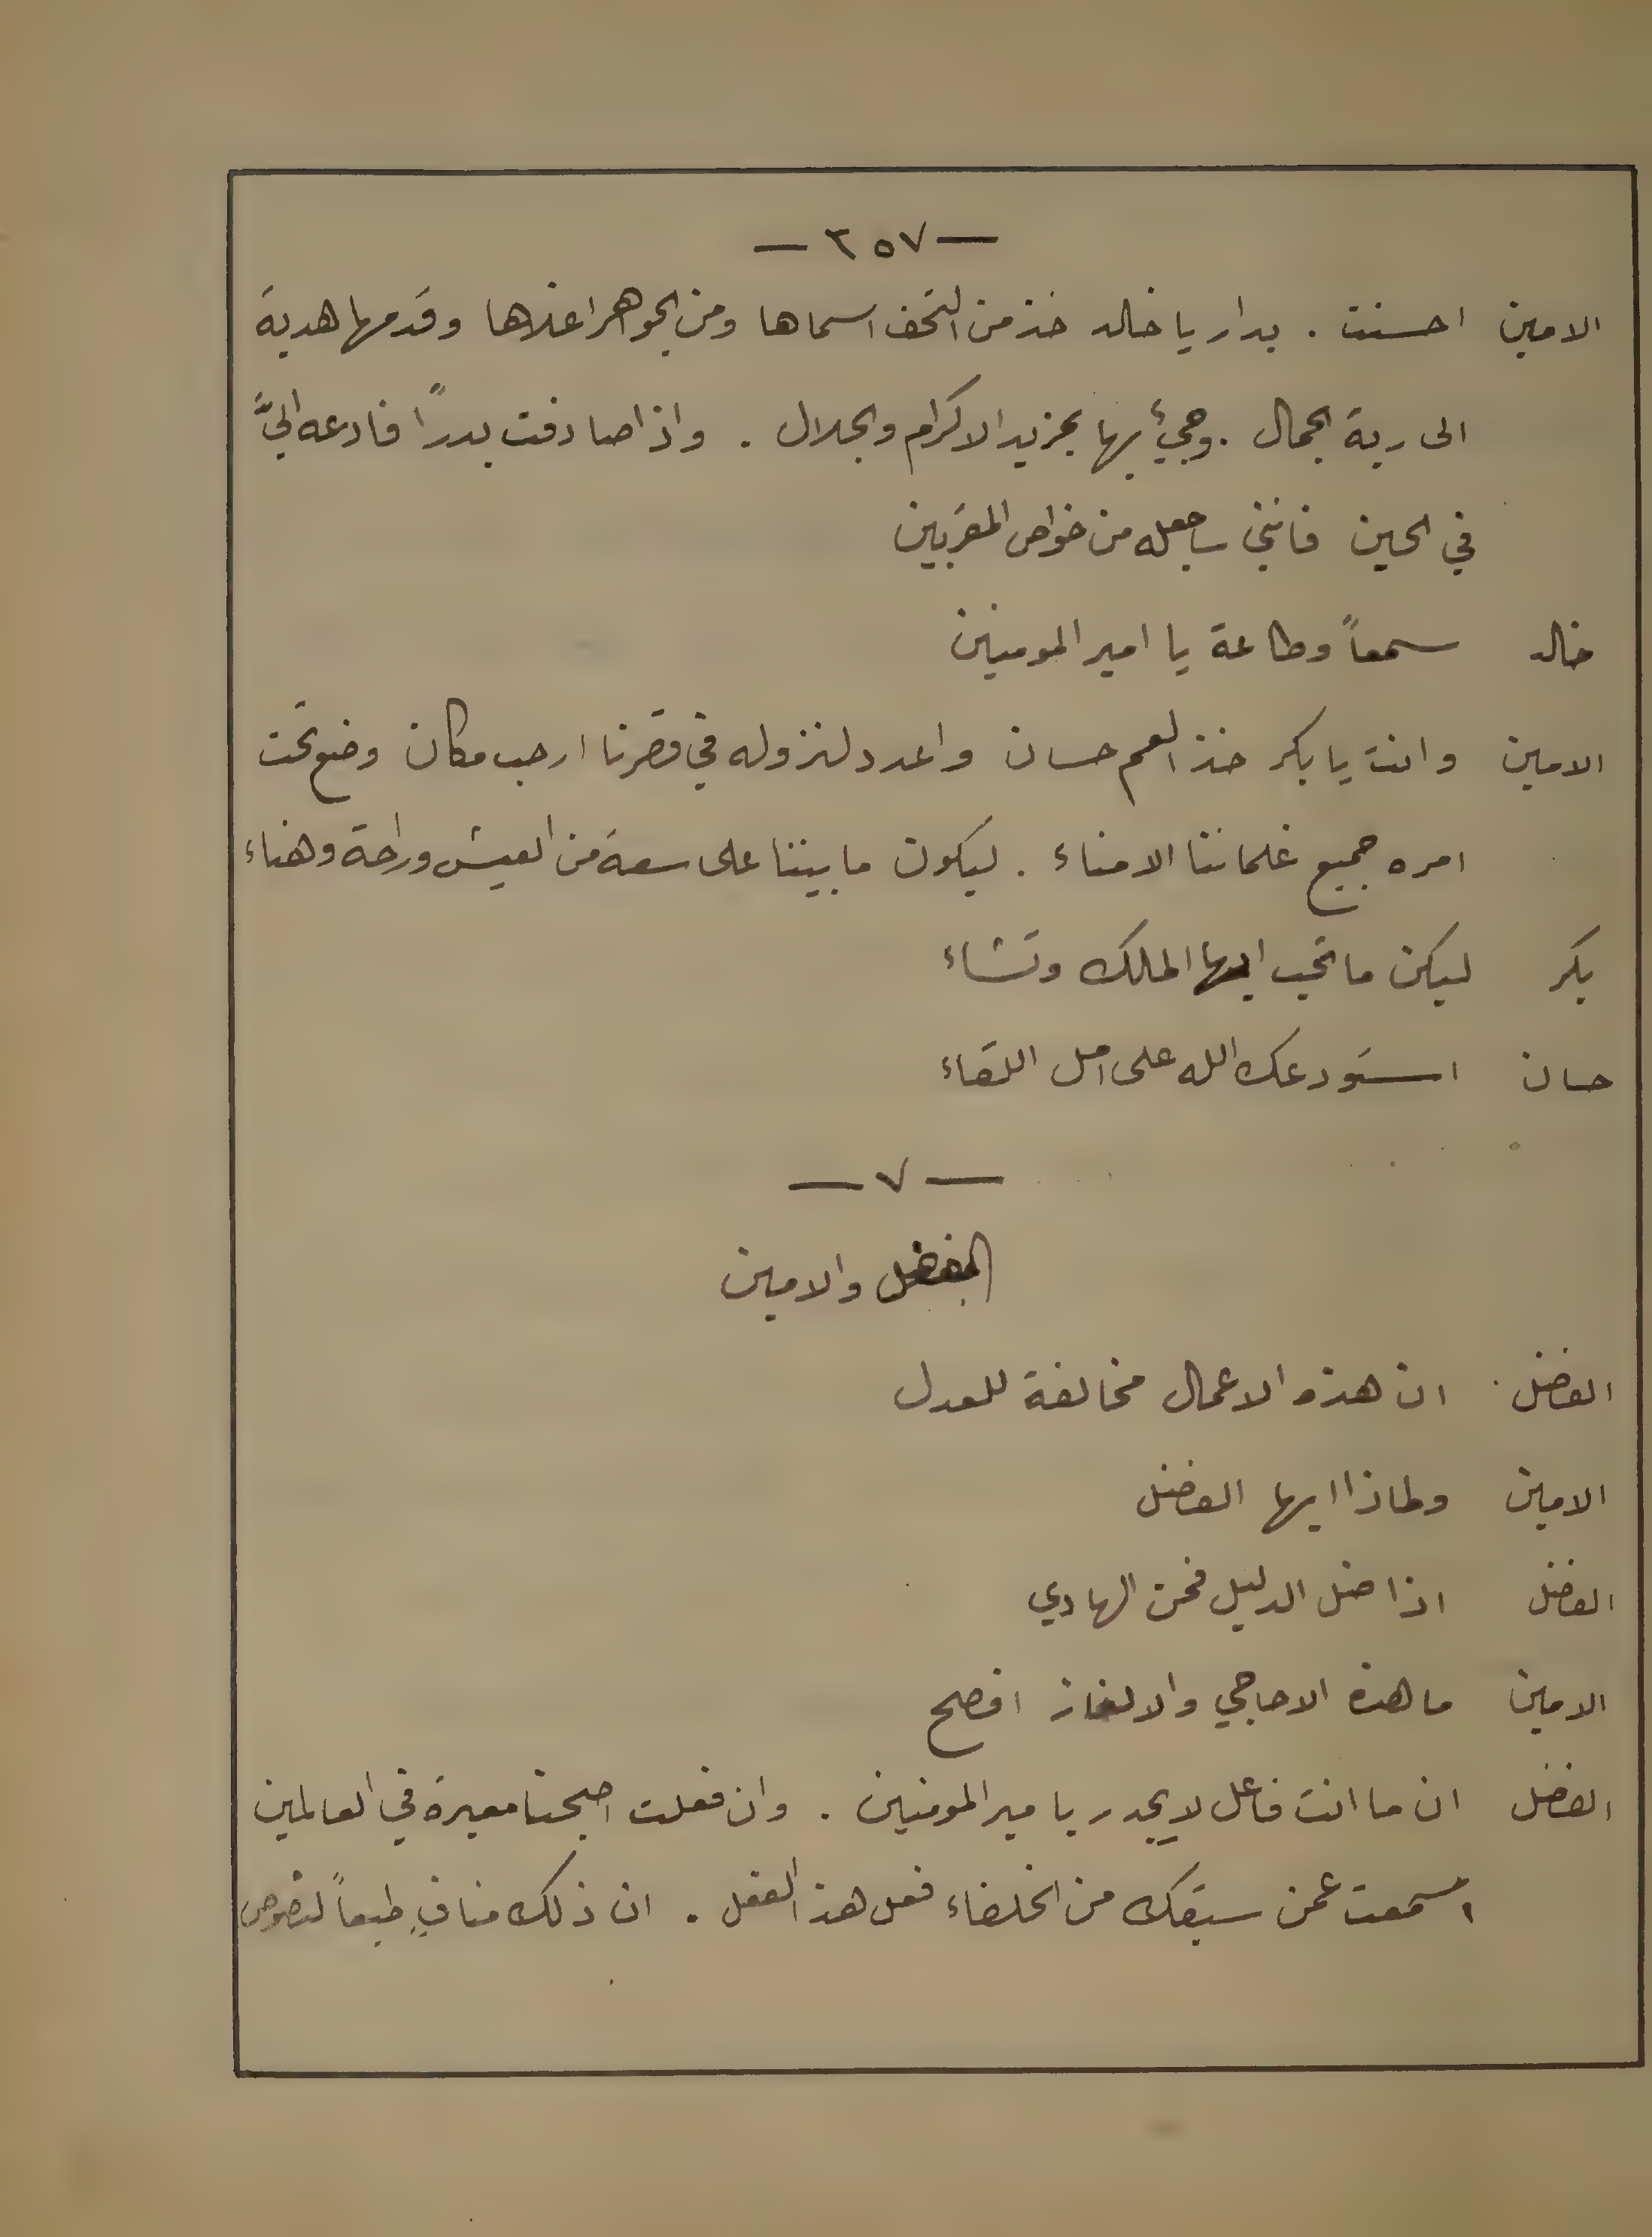 — ٢٥٧ —
الامين احسنت . بدار يا خالد خذ من التحف اسماها ومن الجواهر اغلاها وقدمها هدية
الى ربة الجمال . وجيءْ بها بمزيد الاكرام والجلال . واذا صادفت بدراً فادعه اليَّ
في الحين فانني ساجعله من خواص المقربين
خالد سمعاً وطاعة يا امير المومنين
الامين وانت يا بكر خذ العم حسان واعدد لنزوله في قصرنا ارحب مكان وضع تحت
امره جميع غلماننا الامناء . ليكون ما بيننا على سعة من العيش وراحة وهناء
بكر ليكن ما تحب ايها الملك وتشاء
حسان استودعك الله على امل اللقاء
— ٧ —
الفضل والامين
الفضل ان هذه الاعمال مخالفة للعدل
الامين ولماذا ايها الفضل
الفضل اذا ضل الدليل فمن الهادي
الامين ما هذه الاحاجي والالغاز افصح
الفضل ان ما انت فاعل لا يجدر بامير المومنين . وان فعلت اصبحنا معيرة في العالمين
اسمعت عمن سبقك من الخلفاء فعل هذا الفعل . ان ذلك منافٍ طبعاً لنصوص